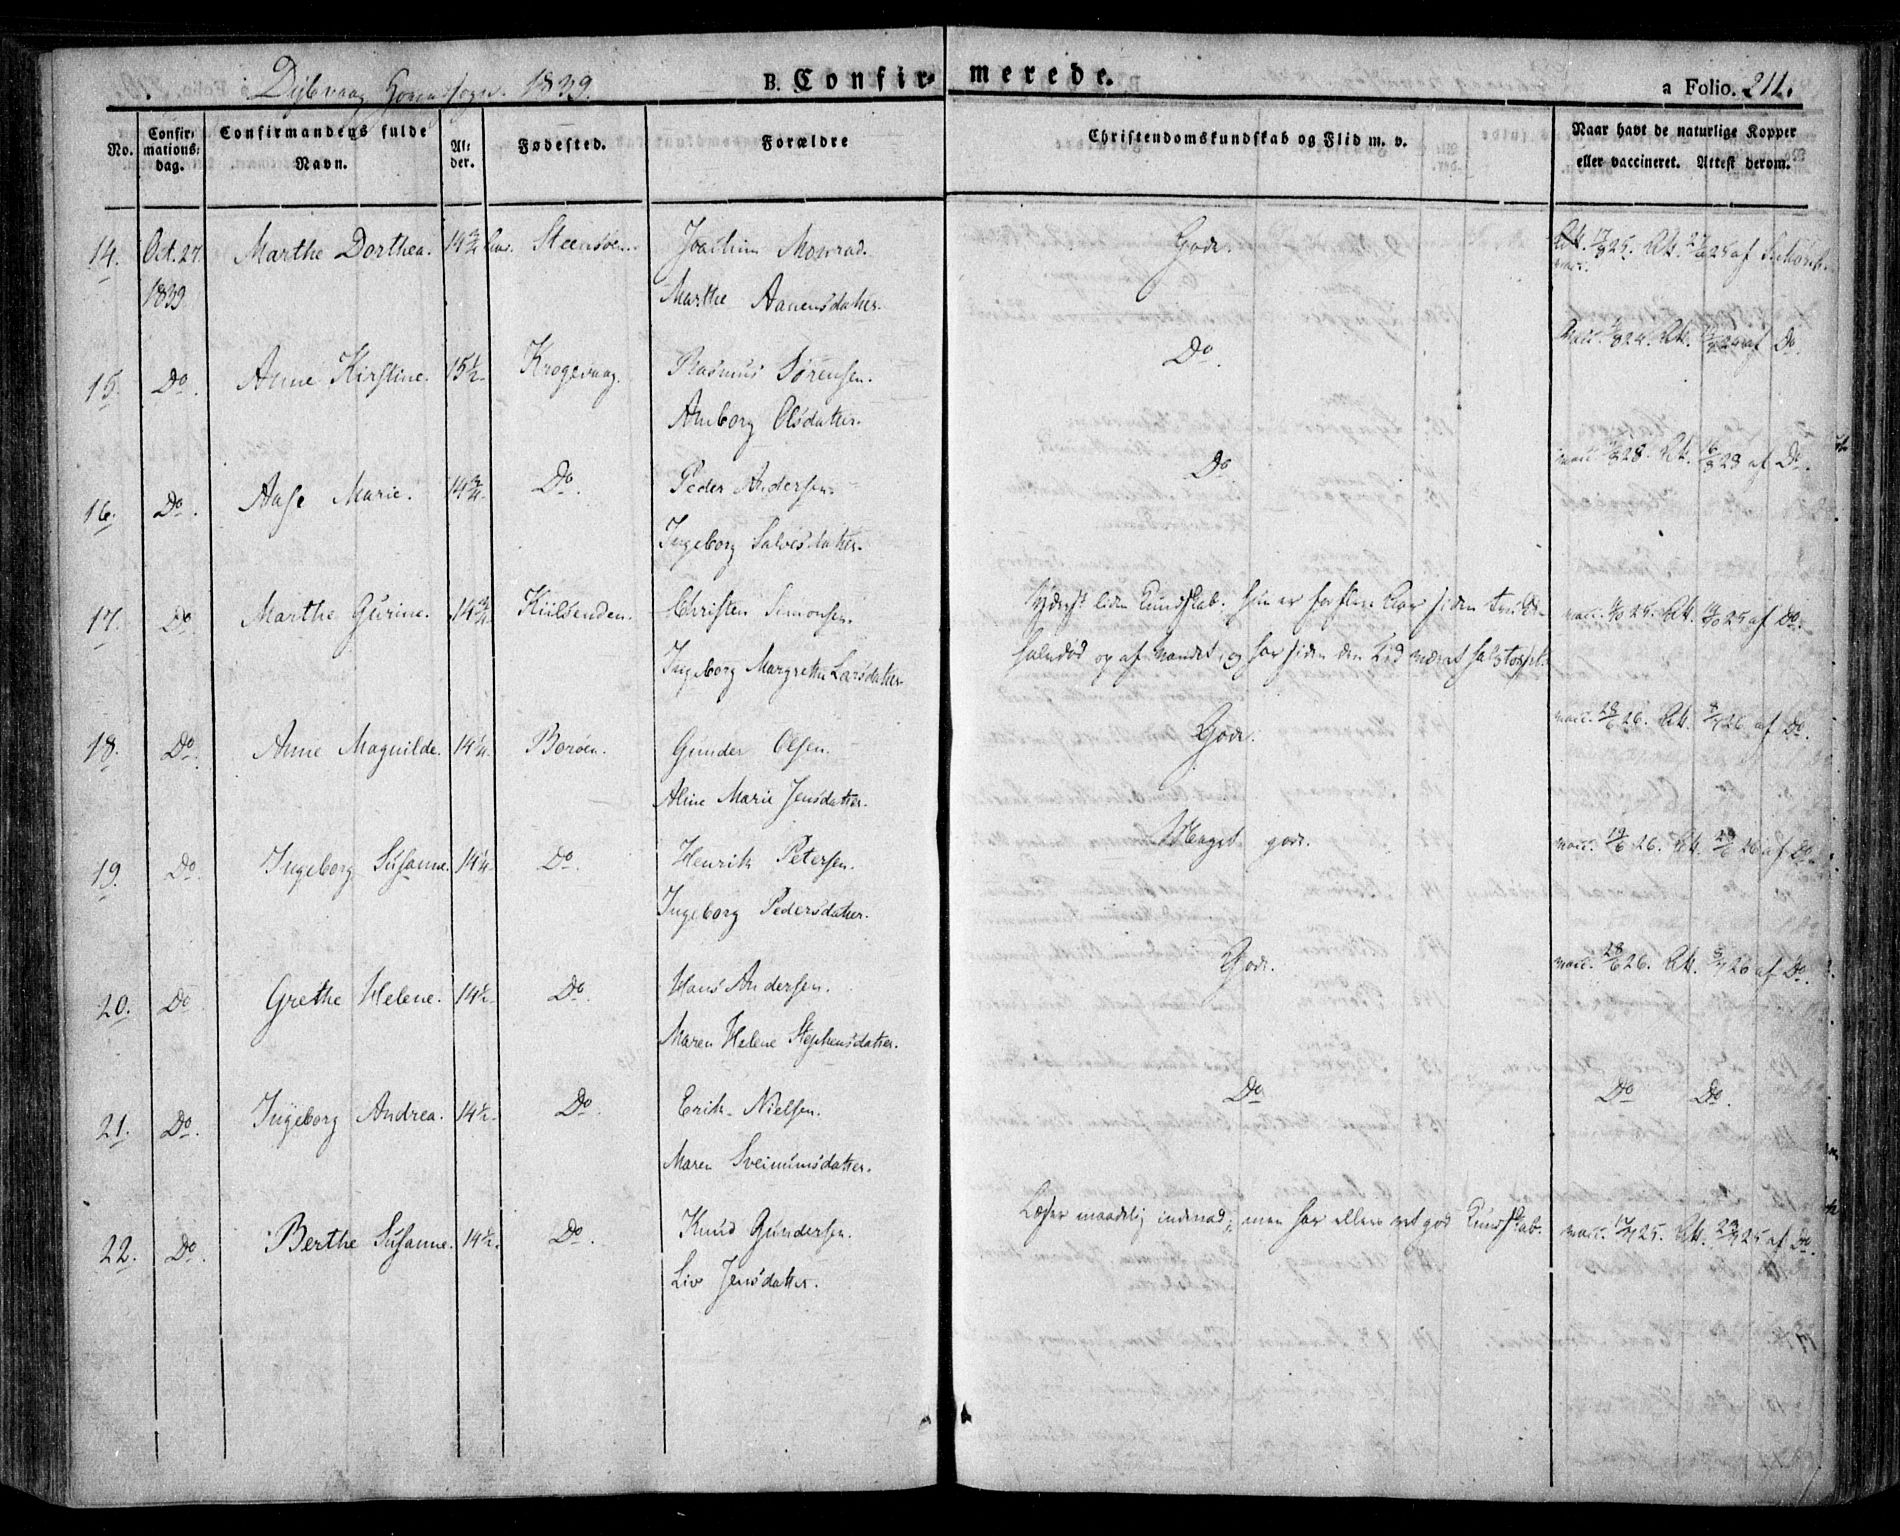 Dybvaag Hovedsogn. 1839.
B. Confir- merede.
a Folio. 211.
No.
Confir-
mations-
dag.
Confirmandens fulde
Navn.
Al-
der.
Fødested.
Forældre
Christendomskundskab og Flid m. v.
Naar havt de naturlige Kopper
eller vaccineret. Attest derom.
14. Oct. 27. Marthe Dorthea. 14¾ Steensøen. Joachim Monrad. God. 17/8 25. Att. 27/8 25 af
1839 Marthe Aanensdatter.
15. Do. Anne Kirstine. 15½ Krogevaag. Rasmus Sørensen. Do. vacc. 24. Att. 24 af Do.
Anborg Olsdatter.
16. Do. Aase Marie. 14¾. Do. Peder Andersen. Do. vacc. 28. Att. 16/8 28 af Do.
Ingeborg Salvesdatter.
17. Do. Marthe Gurine. 14¾ Kiilsenden. Christen Simonsen. Yderst liden Kundskab. Hun er for flere Aar siden
vacc. 25. Att. 25 af Do.
Ingeborg Margrethe Larsdatter. og har siden den Tid været
18. Do. Anne Magnilde. 14¼ Borøen. Gunder Olsen. God. vacc. 28/6 26. Att. 26 af Do.
Aline Marie Jensdatter.
19. Do. Ingeborg Susanne. 14¼. Do. Henrik Petersen. Meget god. vacc. 19/6 26. Att. 29/6 26 af Do.
Ingeborg Pedersdatter.
20. Do. Grethe Helene. 14½. Do. Hans Andersen. God. vacc. 28/6 26. Att. 26 af Do.
Maren Helene Stephensdatter.
21. Do. Ingeborg Andrea. 14½. Do. Erik Nielsen. Do. Do Do.
Maren Sveinumsdatter.
22. Do. Berthe Susanne. 14½. Do. Knud Gundersen. Læser maadelig indenad; men har ellers ret god Kundskab. vacc. 17/7 25. Att. 29/7 25 af Do.
Liv Jensdatter.